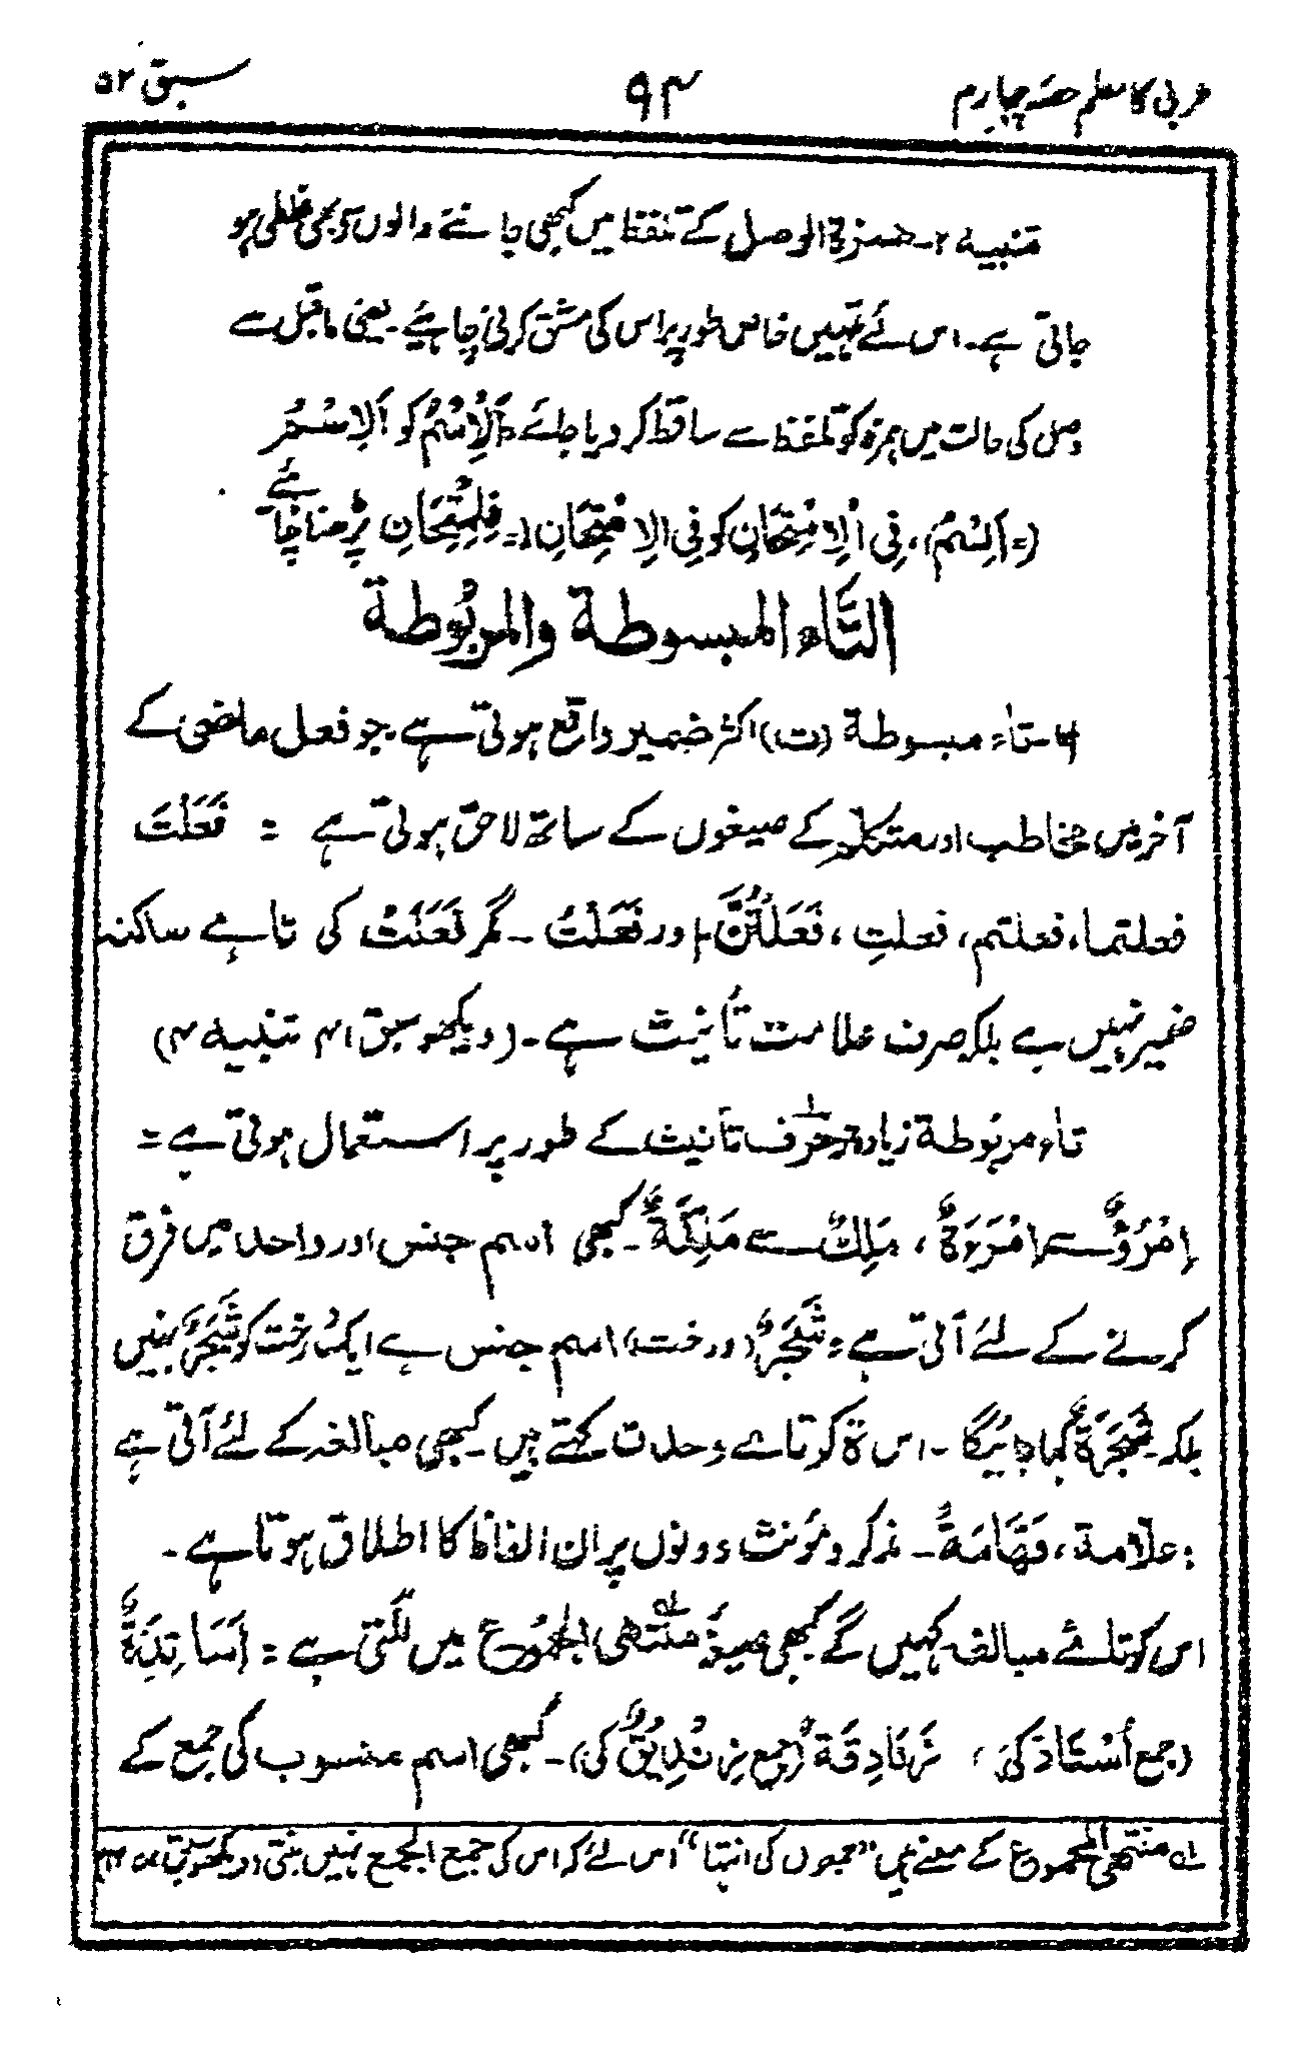 عربی کا معلم حصہ چہارم ۹۴ سبق ۵۲
تنبیہ ۲۔ ھمزة الوصل کے تلفظ میں کبھی جاننے والوں کو بھی غلطی ہو
جاتی ہے۔ اس لئے تمہیں خاص طور پر اس کی مشق کرلینی چاہیئے۔ یعنی ماقبل سے
وصل کی حالت میں ہمزہ کو تلفظ سے ساقط کر دیا جائے اَلْاِسْمُ کو اَلِاسْمُ
(= اَلِسْمُ)، فِی اَلْاِمْتِحَانِ کو فِی الِامْتِحَانِ (= فِلِمْتِحَانِ پڑھنا چاہئے
التَّاء المبسوطة والمربُوطة
۴۔ تاء مبسوطة (ت) اکثر ضمیر واقع ہوتی ہے۔ جو فعل ماضی کے
آخر میں مخاطب اور متکلم کے صیغوں کے ساتھ لاحق ہوتی ہے = فَعَلْتَ
فعلتما، فعلتم، فعلتِ، فَعَلْتُنَّ اور فَعَلْتُ ۔ مگر فَعَلَتْ کی تائے ساکنہ
ضمیر نہیں ہے بلکہ صرف علامت تأنیث ہے۔ (دیکھو سبق ۱۴ تنبیہ ۴)
تاء مربُوطة زیادہ تر حرف تأنیث کے طور پر استعمال ہوتی ہے =
اِمْرُؤٌ سے اِمْرَءَةٌ ، مَلِكٌ سے مَلِكَةٌ ۔ کبھی اسم جنس اور واحد میں فرق
کرنے کے لئے آتی ہے = شَجَرٌ (درخت) اسم جنس ہے ایک درخت کو شَجَرٌ نہیں
بلکہ شَجَرَةٌ کہا جائیگا ۔ اس ة کو تاے وحدت کہتے ہیں ۔ کبھی مبالغہ کے لئے آتی ہے
: علّامة ، فَهَّامَةٌ ۔ مذکر و مؤنث دونوں پر ان الفاظ کا اطلاق ہوتا ہے ۔
اس کو تائے مبالغہ کہیں گے کبھی صیغۂ منتھی الجُمُوع ؎۱ میں لگتی ہے = اَسَاتِذَةٌ
(جمع اُسْتَاذ کی ، زَنَادِقَةٌ (جمع زِنْدِیْقٌ کی) ۔ کبھی اسم منسوب کی جمع کے
؎۱ منتھی الجموع کے معنے ہیں "جمعوں کی انتہا" اس لئے کہ اس کی جمع الجمع نہیں بنتی (دیکھو سبق